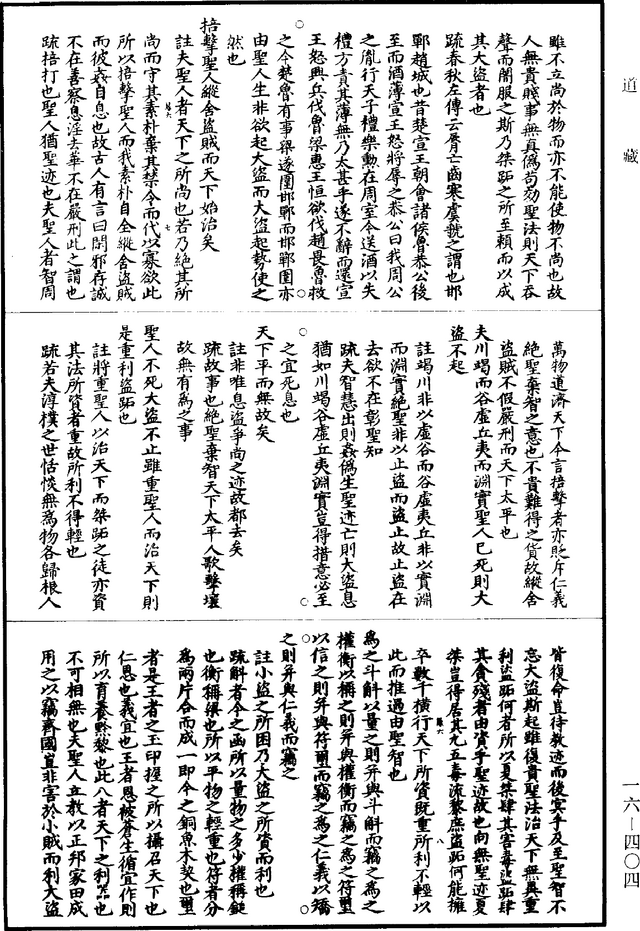 道藏
雖不立尚於物而亦不能使物不尚也故
人無貴賤事無真偽苟効聖法則天下吞
聲而闇服之斯乃桀跖之所至賴而以成
其大盜者也
疏春秋左傳云脣亡齒寒虞虢之謂也邯
鄲趙城也昔楚宣王朝會諸侯魯恭公後
至而酒薄宣王怒將辱之恭公曰我周公
之胤行天子禮樂勳在周室今送酒以失
禮方責其薄無乃太甚乎遂不辭而還宣
王怒興兵伐魯梁惠王恒欲伐趙畏魯救
之今楚魯有事梁遂圍邯鄲而邯鄲圍亦
由聖人生非欲起大盜而大盜起勢使之
然也
掊擊聖人縱舍盜賊而天下始治矣
註夫聖人者天下之所尚也若乃絕其所
尚而守其素朴棄其禁令而代以寡欲此
所以掊擊聖人而我素朴自全縱舍盜賊
而彼姦自息也故古人有言曰閑邪存誠
不在善察息淫去華不在嚴刑此之謂也
疏掊打也聖人猶聖迹也夫聖人者智周
萬物道濟天下今言掊擊者亦貶斥仁義
絕聖棄智之意也不貴難得之貨故縱舍
盜賊不假嚴刑而天下太平也
夫川竭而谷虛丘夷而淵實聖人已死則大
盜不起
註竭川非以虛谷而谷虛夷丘非以實淵
而淵實絕聖非以止盜而盜止故止盜在
去欲不在彰聖知
疏夫智慧出則姦偽生聖迹亡則大盜息
猶如川竭谷虛丘夷淵實豈得措意必至
之宜死息也
天下平而無故矣
註非唯息盜爭尚之迹故都去矣
疏故事也絕聖棄智天下太平人歌擊壤
故無有為之事
聖人不死大盜不止雖重聖人而治天下則
是重利盜跖也
註將重聖人以治天下而桀跖之徒亦資
其法所資者重故所利不得輕也
疏若夫淳樸之世恬惔無為物各歸根人
皆復命豈待教迹而後冥乎及至聖智不
忘大盜斯起雖復貴聖法治天下無異重
利盜跖何者所以夏桀肆其害毒盜跖肆
其貪殘者由資乎聖迹故也向無聖迹夏
桀豈得居其九五毒流黎庶盜跖何能擁
卒數千橫行天下所資既重所利不輕以
此而推過由聖智也
為之斗斛以量之則并與斗斛而竊之為之
權衡以稱之則并與權衡而竊之為之符璽
以信之則并與符璽而竊之為之仁義以矯
之則并與仁義而竊之
註小盜之所困乃大盜之所資而利也
疏斛者今之函所以量物之多少權稱鎚
也衡稱梁也所以平物之輕重也符者分
為兩片合而成一即今之銅魚木契也璽
者是王者之玉印握之所以攝召天下也
仁恩也義宜也王者恩被蒼生循宜作則
所以育養黔黎也此八者天下之利器也
不可相無也夫聖人立教以正邦家田成
用之以竊齊國豈非害於小賊而利大盜
一六—四〇四